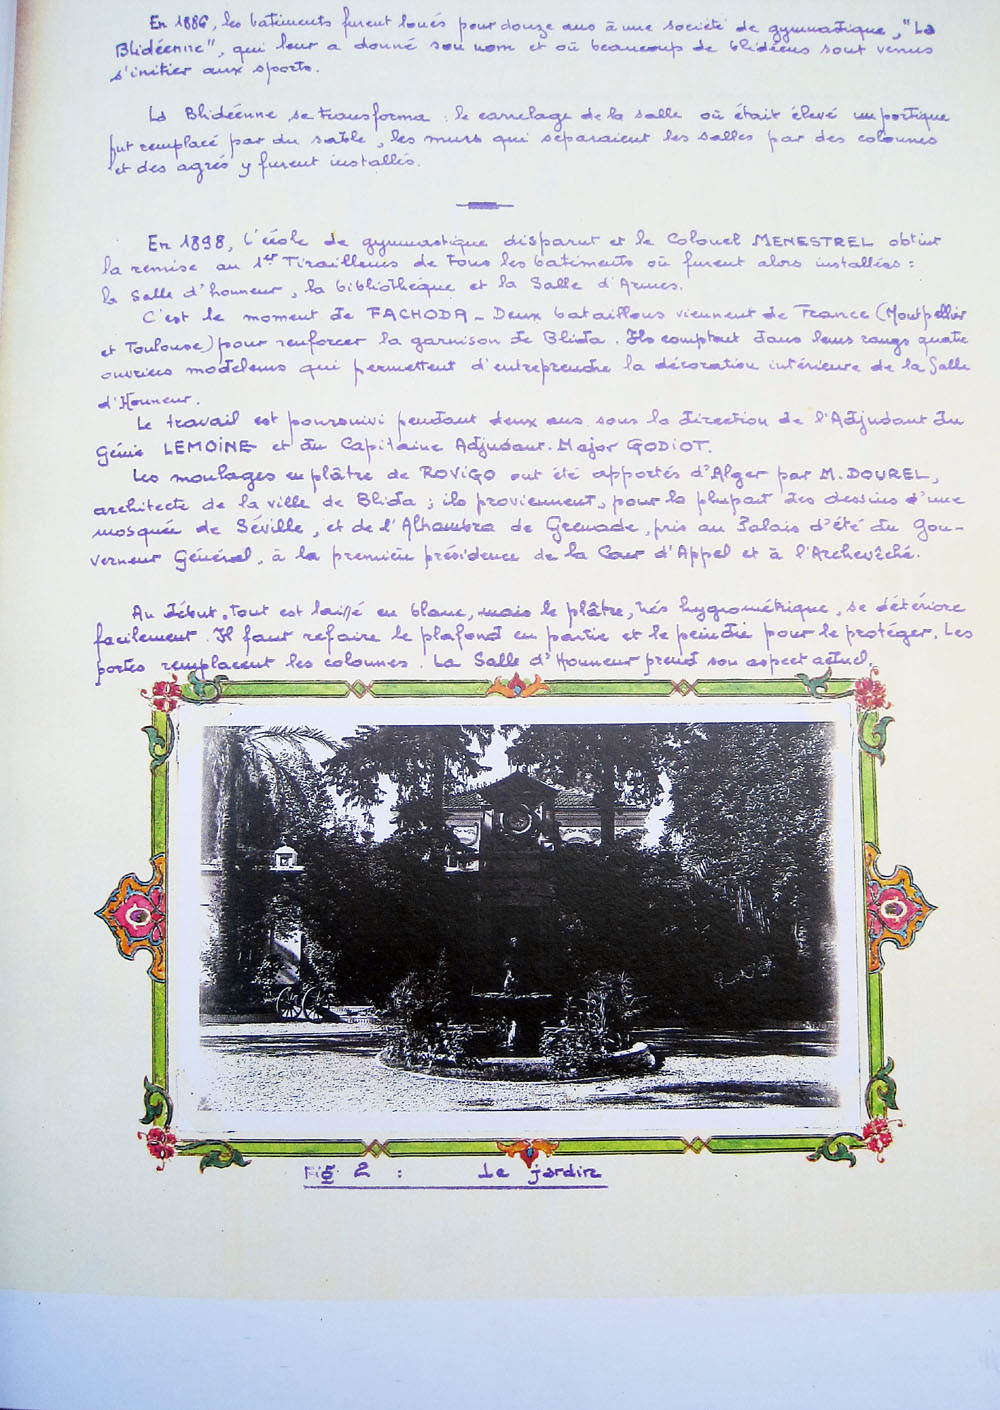 En 1886, les batiments furent loués pour douze ans à une société de gymnastique, "La
Blidéenne", qui leur a donné son nom et où beaucoup de blidéens sont venus
s'initier aux sports.
La Blidéenne se transforma : le carrelage de la salle où était élevé un portique
fut remplacé par du sable, les murs qui séparaient les salles par des colonnes
et des agrés y furent installés.
En 1898, l'école de gymnastique disparut et le Colonel MENESTREL obtint
la remise au 1er Tirailleurs de tous les batiments où furent alors installées :
la Salle d'honneur, la bibliothèque et la Salle d'Armes.
C'est le moment de FACHODA - Deux bataillons viennent de France (Montpellier
et Toulouse) pour renforcer la garnison de Blida. Ils comptent dans leurs rangs quatre
ouvriers modeleurs qui permettent d'entreprendre la décoration intérieure de la Salle
d'Honneur.
Le travail est poursuivi pendant deux ans sous la direction de l'Adjudant du
Génie LEMOINE et du Capitaine Adjudant-Major GODIOT.
Les moulages en plâtre de ROVIGO ont été apportés d'Alger par M. DOUREL,
architecte de la ville de Blida ; ils proviennent, pour la plupart des dessins d'une
mosquée de Séville, et de l'Alhambra de Grenade, pris au Palais d'été du Gou-
verneur Général, à la première présidence de la Cour d'Appel et à l'Archevêché.
Au début, tout est laissé en blanc, mais le plâtre, très hygrométrique, se détériore
facilement. Il faut refaire le plafond en partie et le peindre pour le protéger. Les
portes remplacent les colonnes. La Salle d'Honneur prend son aspect actuel.
Fig 2 : Le jardin